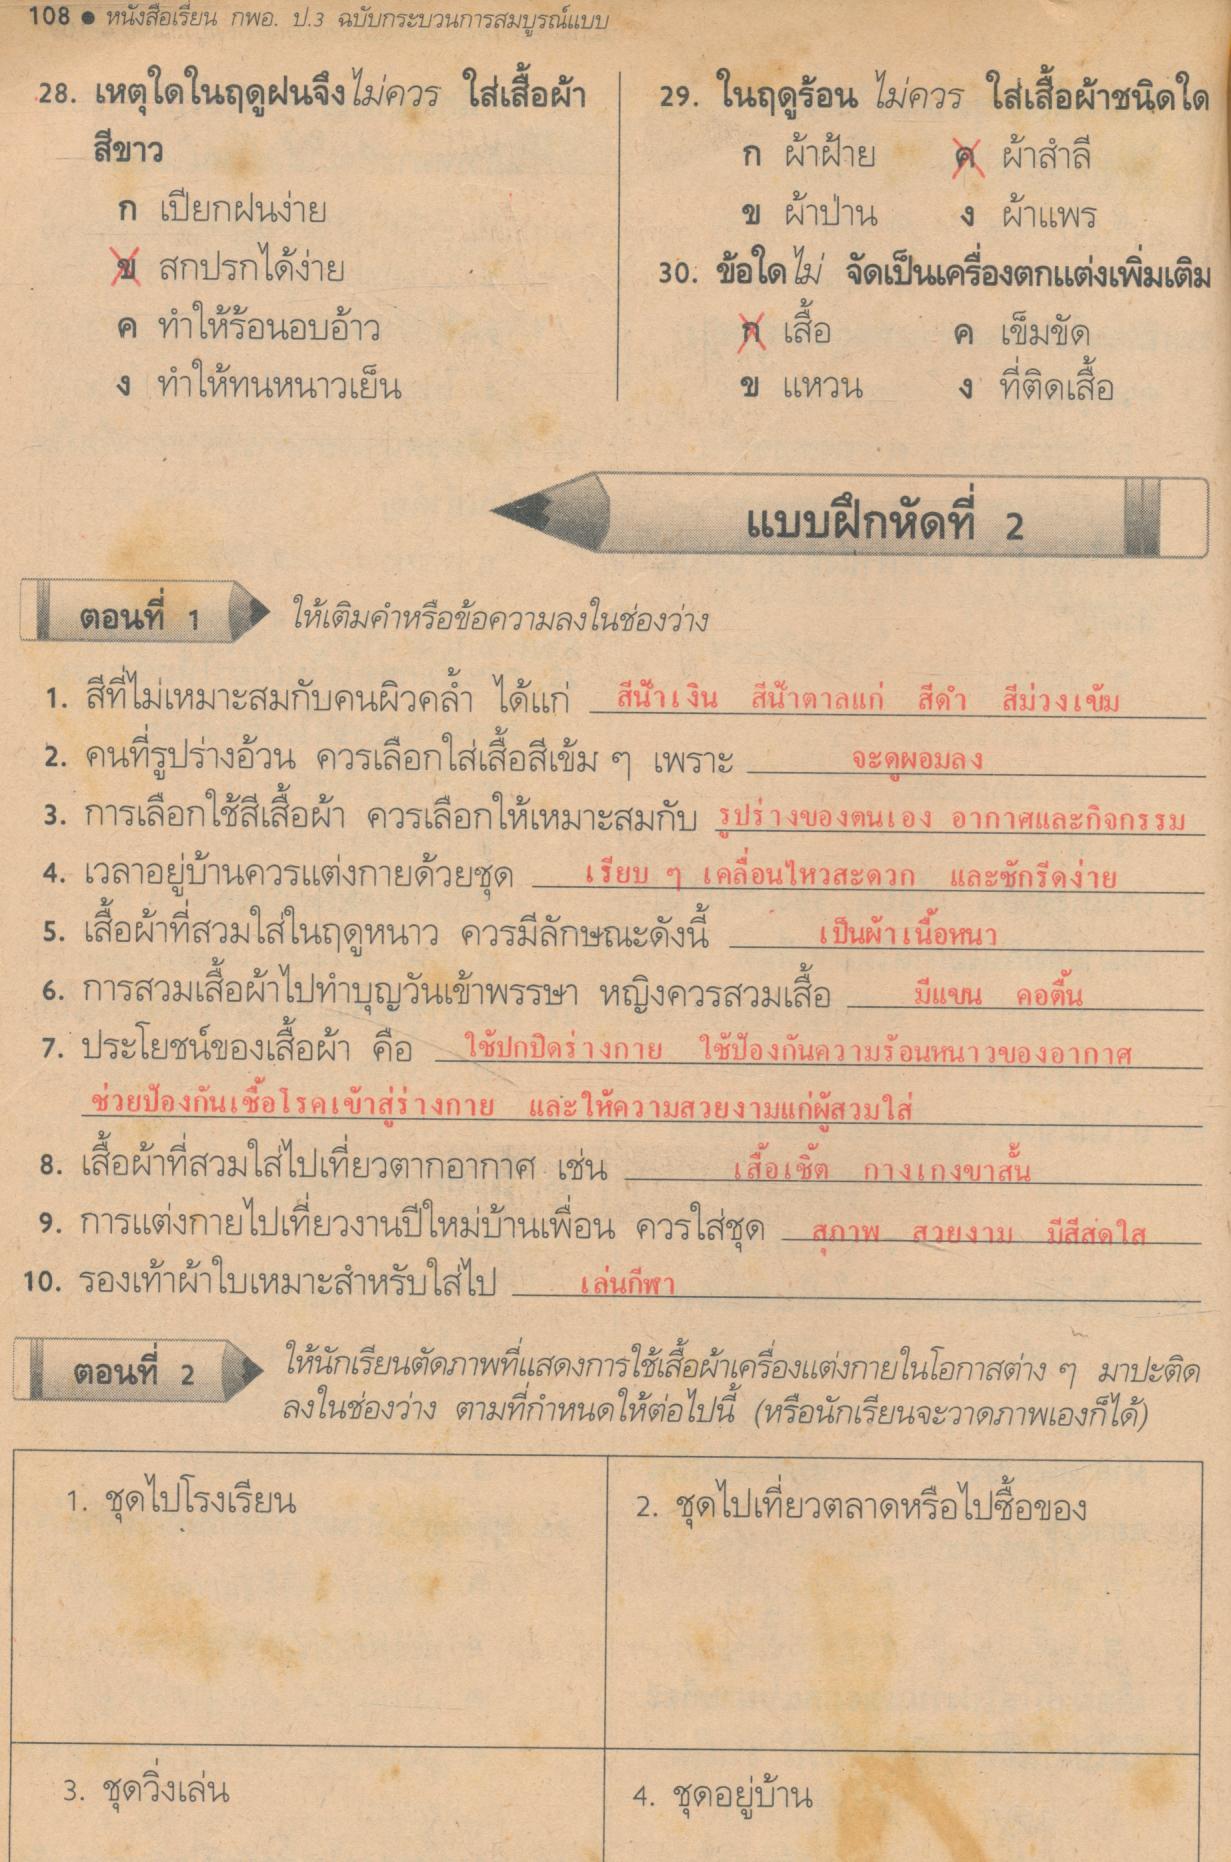 108 ● หนังสือเรียน กพอ. ป.3 ฉบับกระบวนการสมบูรณ์แบบ
28. เหตุใดในฤดูฝนจึงไม่ควร ใส่เสื้อผ้า
สีขาว
ก เปียกฝนง่าย
ข สกปรกได้ง่าย
ค ทำให้ร้อนอบอ้าว
ง ทำให้ทนหนาวเย็น
29. ในฤดูร้อน ไม่ควร ใส่เสื้อผ้าชนิดใด
ก ผ้าฝ้าย ค ผ้าสำลี
ข ผ้าป่าน ง ผ้าแพร
30. ข้อใดไม่ จัดเป็นเครื่องตกแต่งเพิ่มเติม
ก เสื้อ ค เข็มขัด
ข แหวน ง ที่ติดเสื้อ
แบบฝึกหัดที่ 2
ตอนที่ 1 ให้เติมคำหรือข้อความลงในช่องว่าง
1. สีที่ไม่เหมาะสมกับคนผิวคล้ำ ได้แก่ สีน้ำเงิน สีน้ำตาลแก่ สีดำ สีม่วงเข้ม
2. คนที่รูปร่างอ้วน ควรเลือกใส่เสื้อสีเข้ม ๆ เพราะ จะดูผอมลง
3. การเลือกใช้สีเสื้อผ้า ควรเลือกให้เหมาะสมกับ รูปร่างของตนเอง อากาศและกิจกรรม
4. เวลาอยู่บ้านควรแต่งกายด้วยชุด เรียบ ๆ เคลื่อนไหวสะดวก และซักรีดง่าย
5. เสื้อผ้าที่สวมใส่ในฤดูหนาว ควรมีลักษณะดังนี้ เป็นผ้าเนื้อหนา
6. การสวมเสื้อผ้าไปทำบุญวันเข้าพรรษา หญิงควรสวมเสื้อ มีแขน คอตื้น
7. ประโยชน์ของเสื้อผ้า คือ ใช้ปกปิดร่างกาย ใช้ป้องกันความร้อนหนาวของอากาศ
ช่วยป้องกันเชื้อโรคเข้าสู่ร่างกาย และให้ความสวยงามแก่ผู้สวมใส่
8. เสื้อผ้าที่สวมใส่ไปเที่ยวตากอากาศ เช่น เสื้อเชิ้ต กางเกงขาสั้น
9. การแต่งกายไปเที่ยวงานปีใหม่บ้านเพื่อน ควรใส่ชุด สุภาพ สวยงาม มีสีสดใส
10. รองเท้าผ้าใบเหมาะสำหรับใส่ไป เล่นกีฬา
ตอนที่ 2 ให้นักเรียนตัดภาพที่แสดงการใช้เสื้อผ้าเครื่องแต่งกายในโอกาสต่าง ๆ มาปะติด
ลงในช่องว่าง ตามที่กำหนดให้ต่อไปนี้ (หรือนักเรียนจะวาดภาพเองก็ได้)
1. ชุดไปโรงเรียน
2. ชุดไปเที่ยวตลาดหรือไปซื้อของ
3. ชุดวิ่งเล่น
4. ชุดอยู่บ้าน